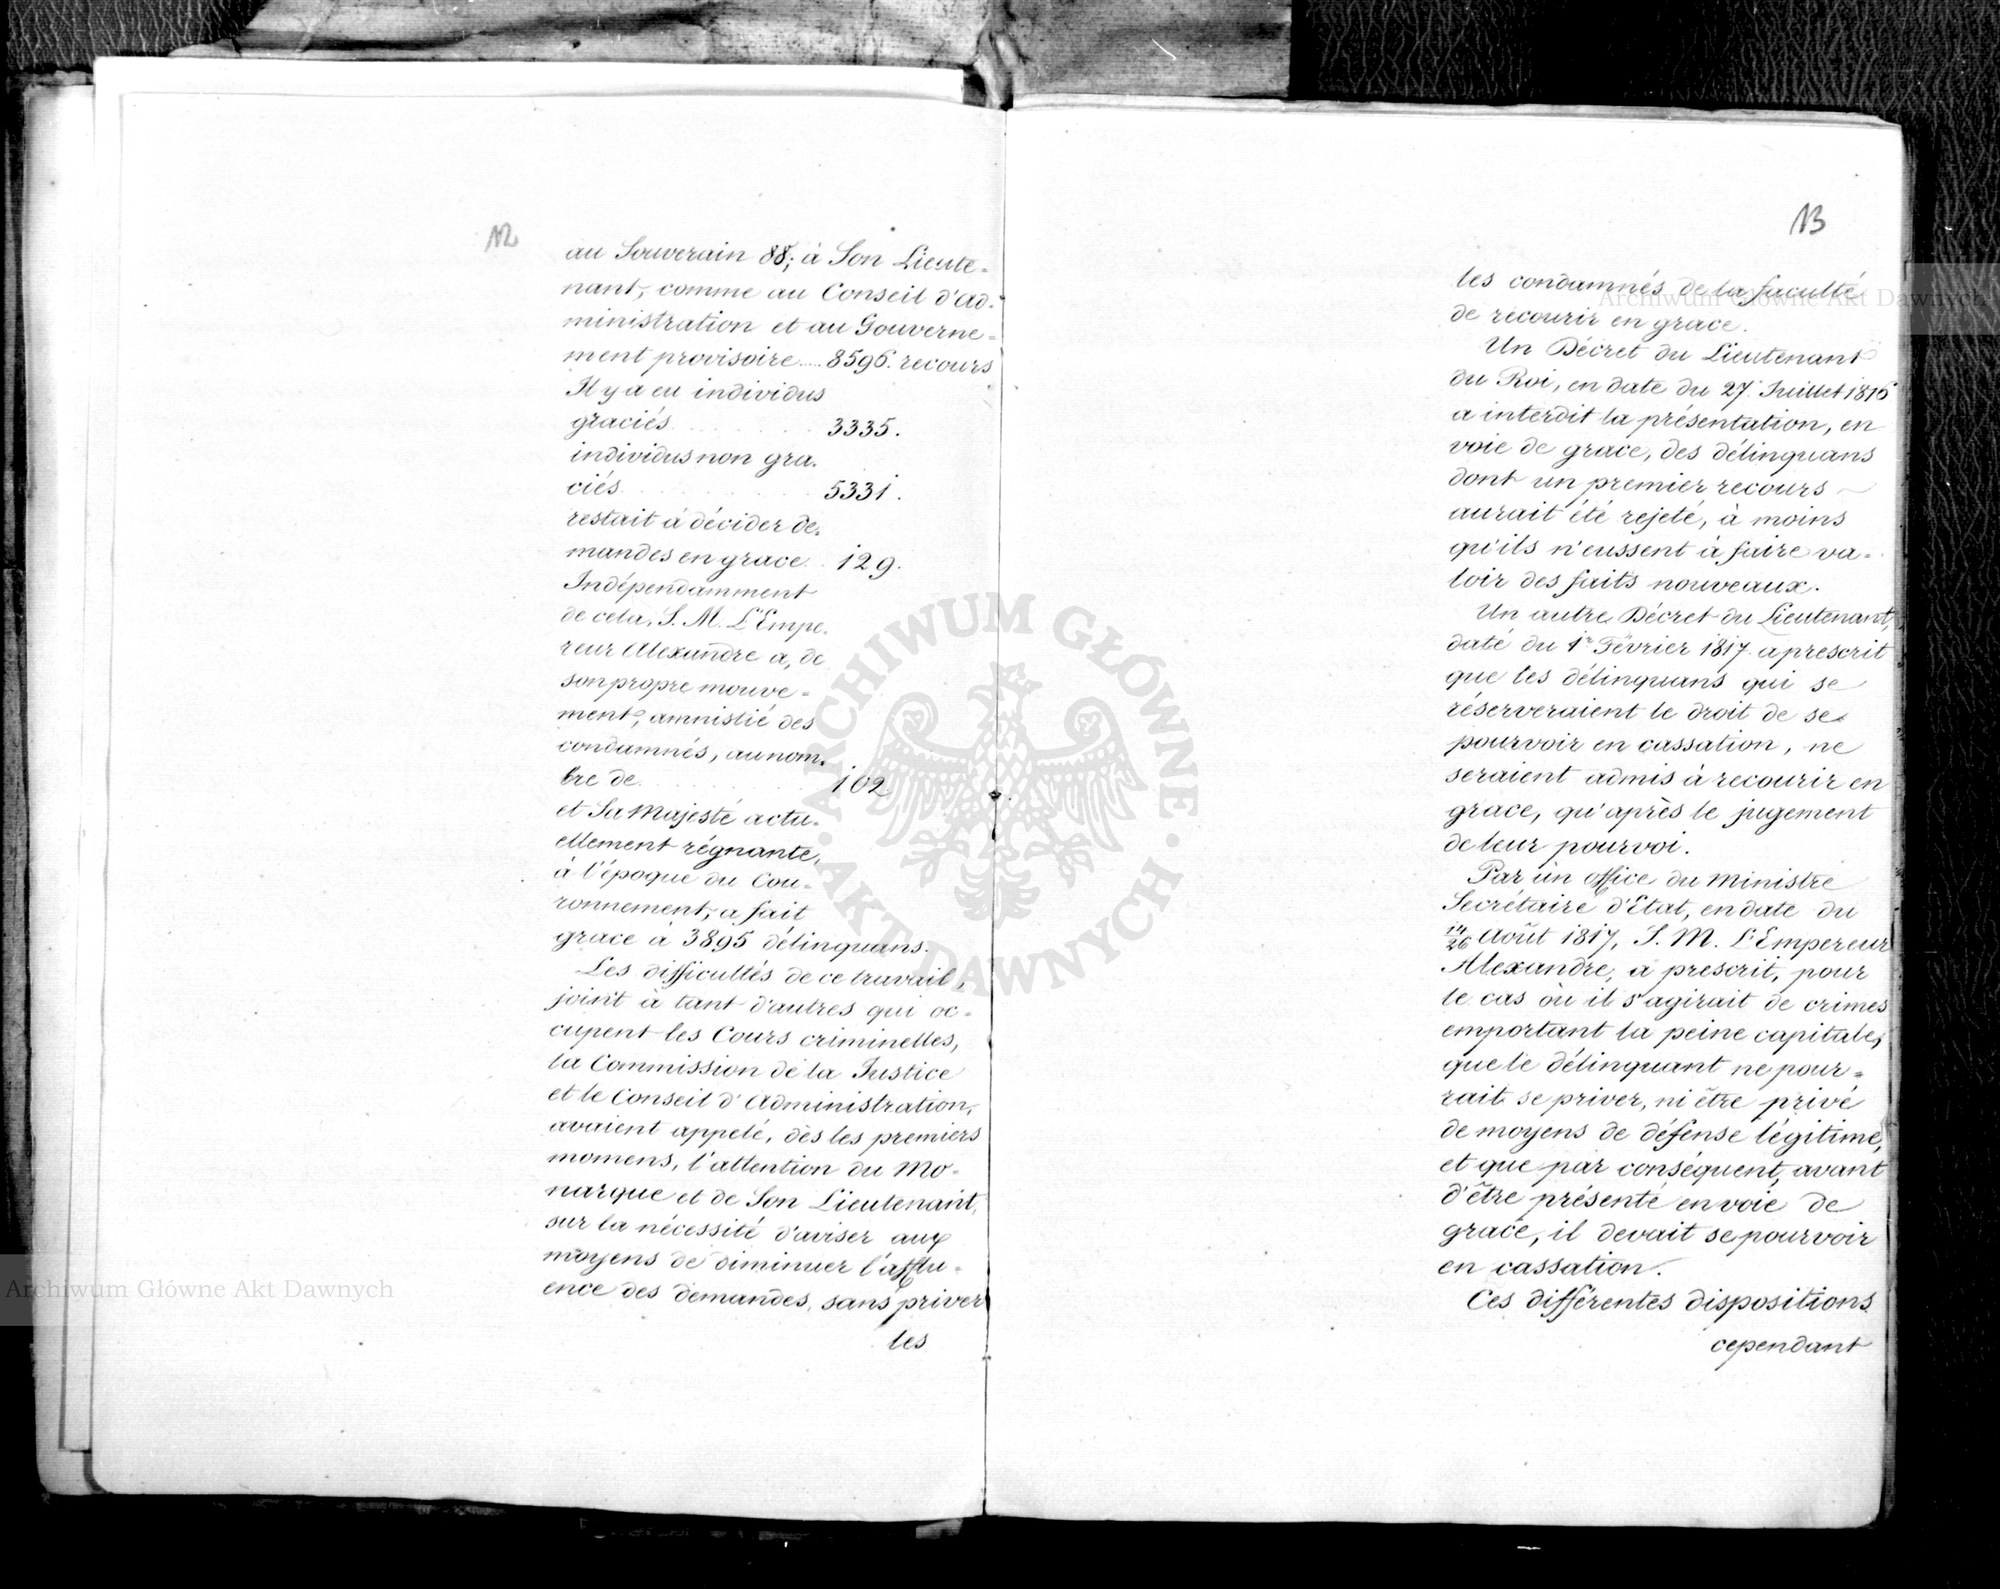 12
au Souverain 88; à Son Lieute-
nant, comme au Conseil d'Ad-
ministration et au Gouverne-
ment provisoire.... 8596. recours
Il y a eu individus
graciés . . . . . . . 3335.
individus non gra-
ciés . . . . . . . . . 5331.
restait à décider de-
mandes en grace . . 129.
Indépendamment
de cela, S. M. L'Empe-
reur Alexandre a, de
son propre mouve-
ment, amnistié des
condamnés, au nom-
bre de . . . . . . . . 102
et Sa Majesté actu-
ellement régnante,
à l'époque du Cou-
ronnement, a fait
grace à 3895 délinquans.
Les difficultés de ce travail,
joint à tant d'autres qui oc-
cupent les Cours criminelles,
la Commission de la Justice
et le Conseil d'Administration,
avaient appelé, dès les premiers
momens, l'attention du Mo-
narque et de Son Lieutenant,
sur la nécessité d'aviser aux
moyens de diminuer l'afflu-
ence des demandes, sans priver
les
13
les condamnés de la faculté
de recourir en grace.
Un Décret du Lieutenant
du Roi, en date du 27. Juillet 1816
a interdit la présentation, en
voie de grace, des délinquans
dont un premier recours
aurait été rejeté, à moins
qu'ils n'eussent à faire va-
loir des faits nouveaux.
Un autre Décret du Lieutenant,
daté du 1r Février 1817. a prescrit
que les délinquans qui se
réserveraient le droit de se
pourvoir en cassation, ne
seraient admis à recourir en
grace, qu'après le jugement
de leur pourvoi.
Par un office du Ministre
Secrétaire d'Etat, en date du
14/26 Août 1817, S. M. L'Empereur
Alexandre, a prescrit, pour
le cas où il s'agirait de crimes
emportant la peine capitale,
que le délinquant ne pour-
rait se priver, ni être privé
de moyens de défense légitime,
et que par conséquent, avant
d'être présenté en voie de
grace, il devait se pourvoir
en cassation.
Ces différentes dispositions
cependant
ARCHIWUM GŁÓWNE AKT DAWNYCH
Archiwum Główne Akt Dawnych
Archiwum Główne Akt Dawnych